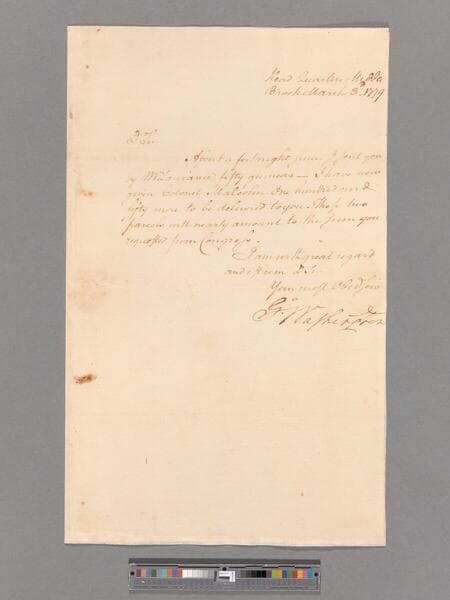 Head Quarters Middle
Brook March 3d. 1779
D Sir
About a fortnight since I sent you
by Mr. fifty guineas — I have now
given Colonel Malcolm One hundred and
fifty more to be delivered to you. These two
parcels will nearly amount to the sum you
requested from Congress.
I am with great regard
and esteem D Sr.
Your most Obed Serv
Go. Washington